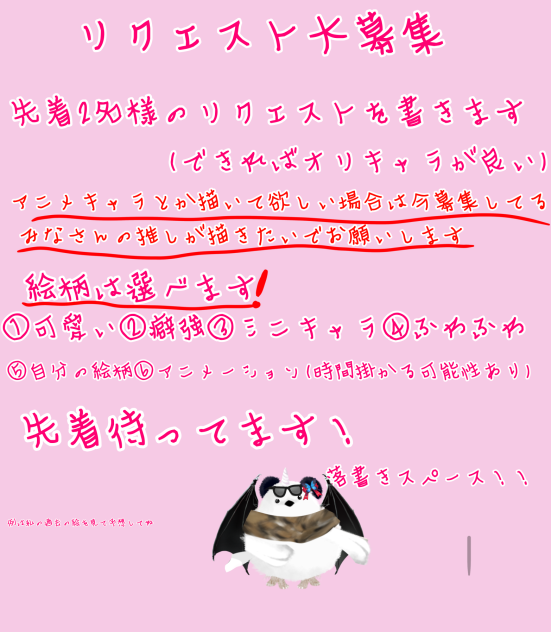 リクエスト大募集
先着2名様のリクエストを書きます
(できればオリキャラが良い)
アニメキャラとか描いて欲しい場合は今募集してる
みなさんの推しが描きたいでお願いします
絵柄は選べます!
①可愛い②癖強③ミニキャラ④ふわふわ
⑤自分の絵柄⑥アニメーション(時間掛かる可能性あり)
先着待ってます!
落書きスペース!!
の過去の絵を見て予想してね